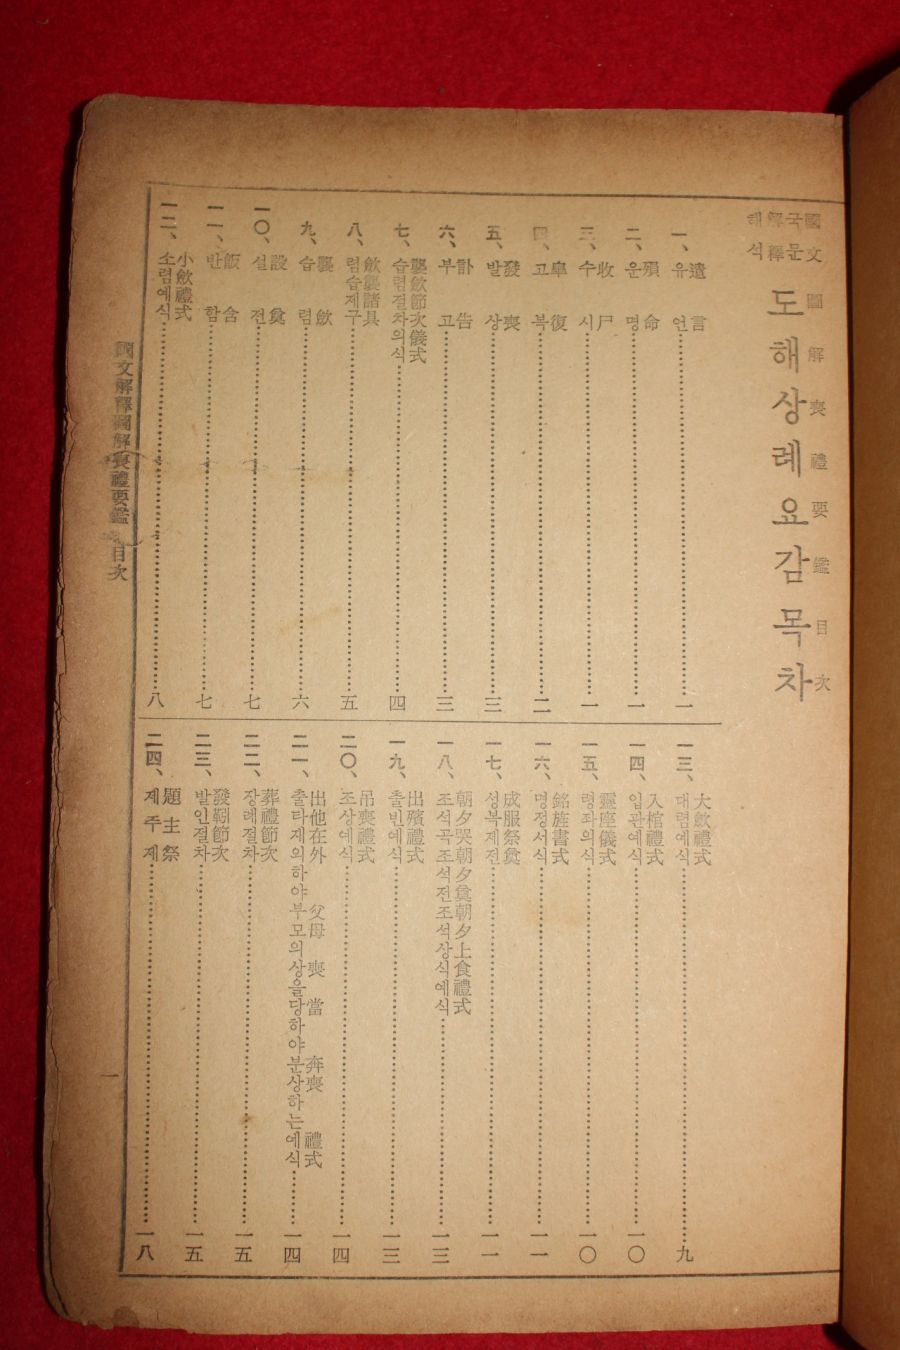 國文解釋 국문해석
圖解喪禮要鑑目次
도해상례요감목차
一、 遺言 유언 一
二、 殞命 운명 一
三、 收尸 수시 一
四、 皐復 고복 二
五、 發喪 발상 三
六、 訃告 부고 三
七、 襲歛節次儀式 습렴절차의식 四
八、 歛襲諸具 렴습제구 五
九、 襲歛 습렴 六
一〇、 設奠 설전 七
一一、 飯含 반함 七
一二、 小歛禮式 소렴예식 八
一三、 大歛禮式 대렴예식 九
一四、 入棺禮式 입관예식 一〇
一五、 靈座儀式 령좌의식 一〇
一六、 銘旌書式 명정서식 一一
一七、 成服祭奠 성복제전 一一
一八、 朝夕哭朝夕奠朝夕上食禮式 조석곡조석전조석상식예식 一三
一九、 出殯禮式 출빈예식 一三
二〇、 吊喪禮式 조상예식 一四
二一、 出他在外 父母喪當 奔喪 禮式 출타재외하야부모의상을당하야분상하는예식 一四
二二、 葬禮節次 장례절차 一五
二三、 發靷節次 발인절차 一五
二四、 題主祭 제주제 一八
國文解釋圖解喪禮要鑑 目次
一